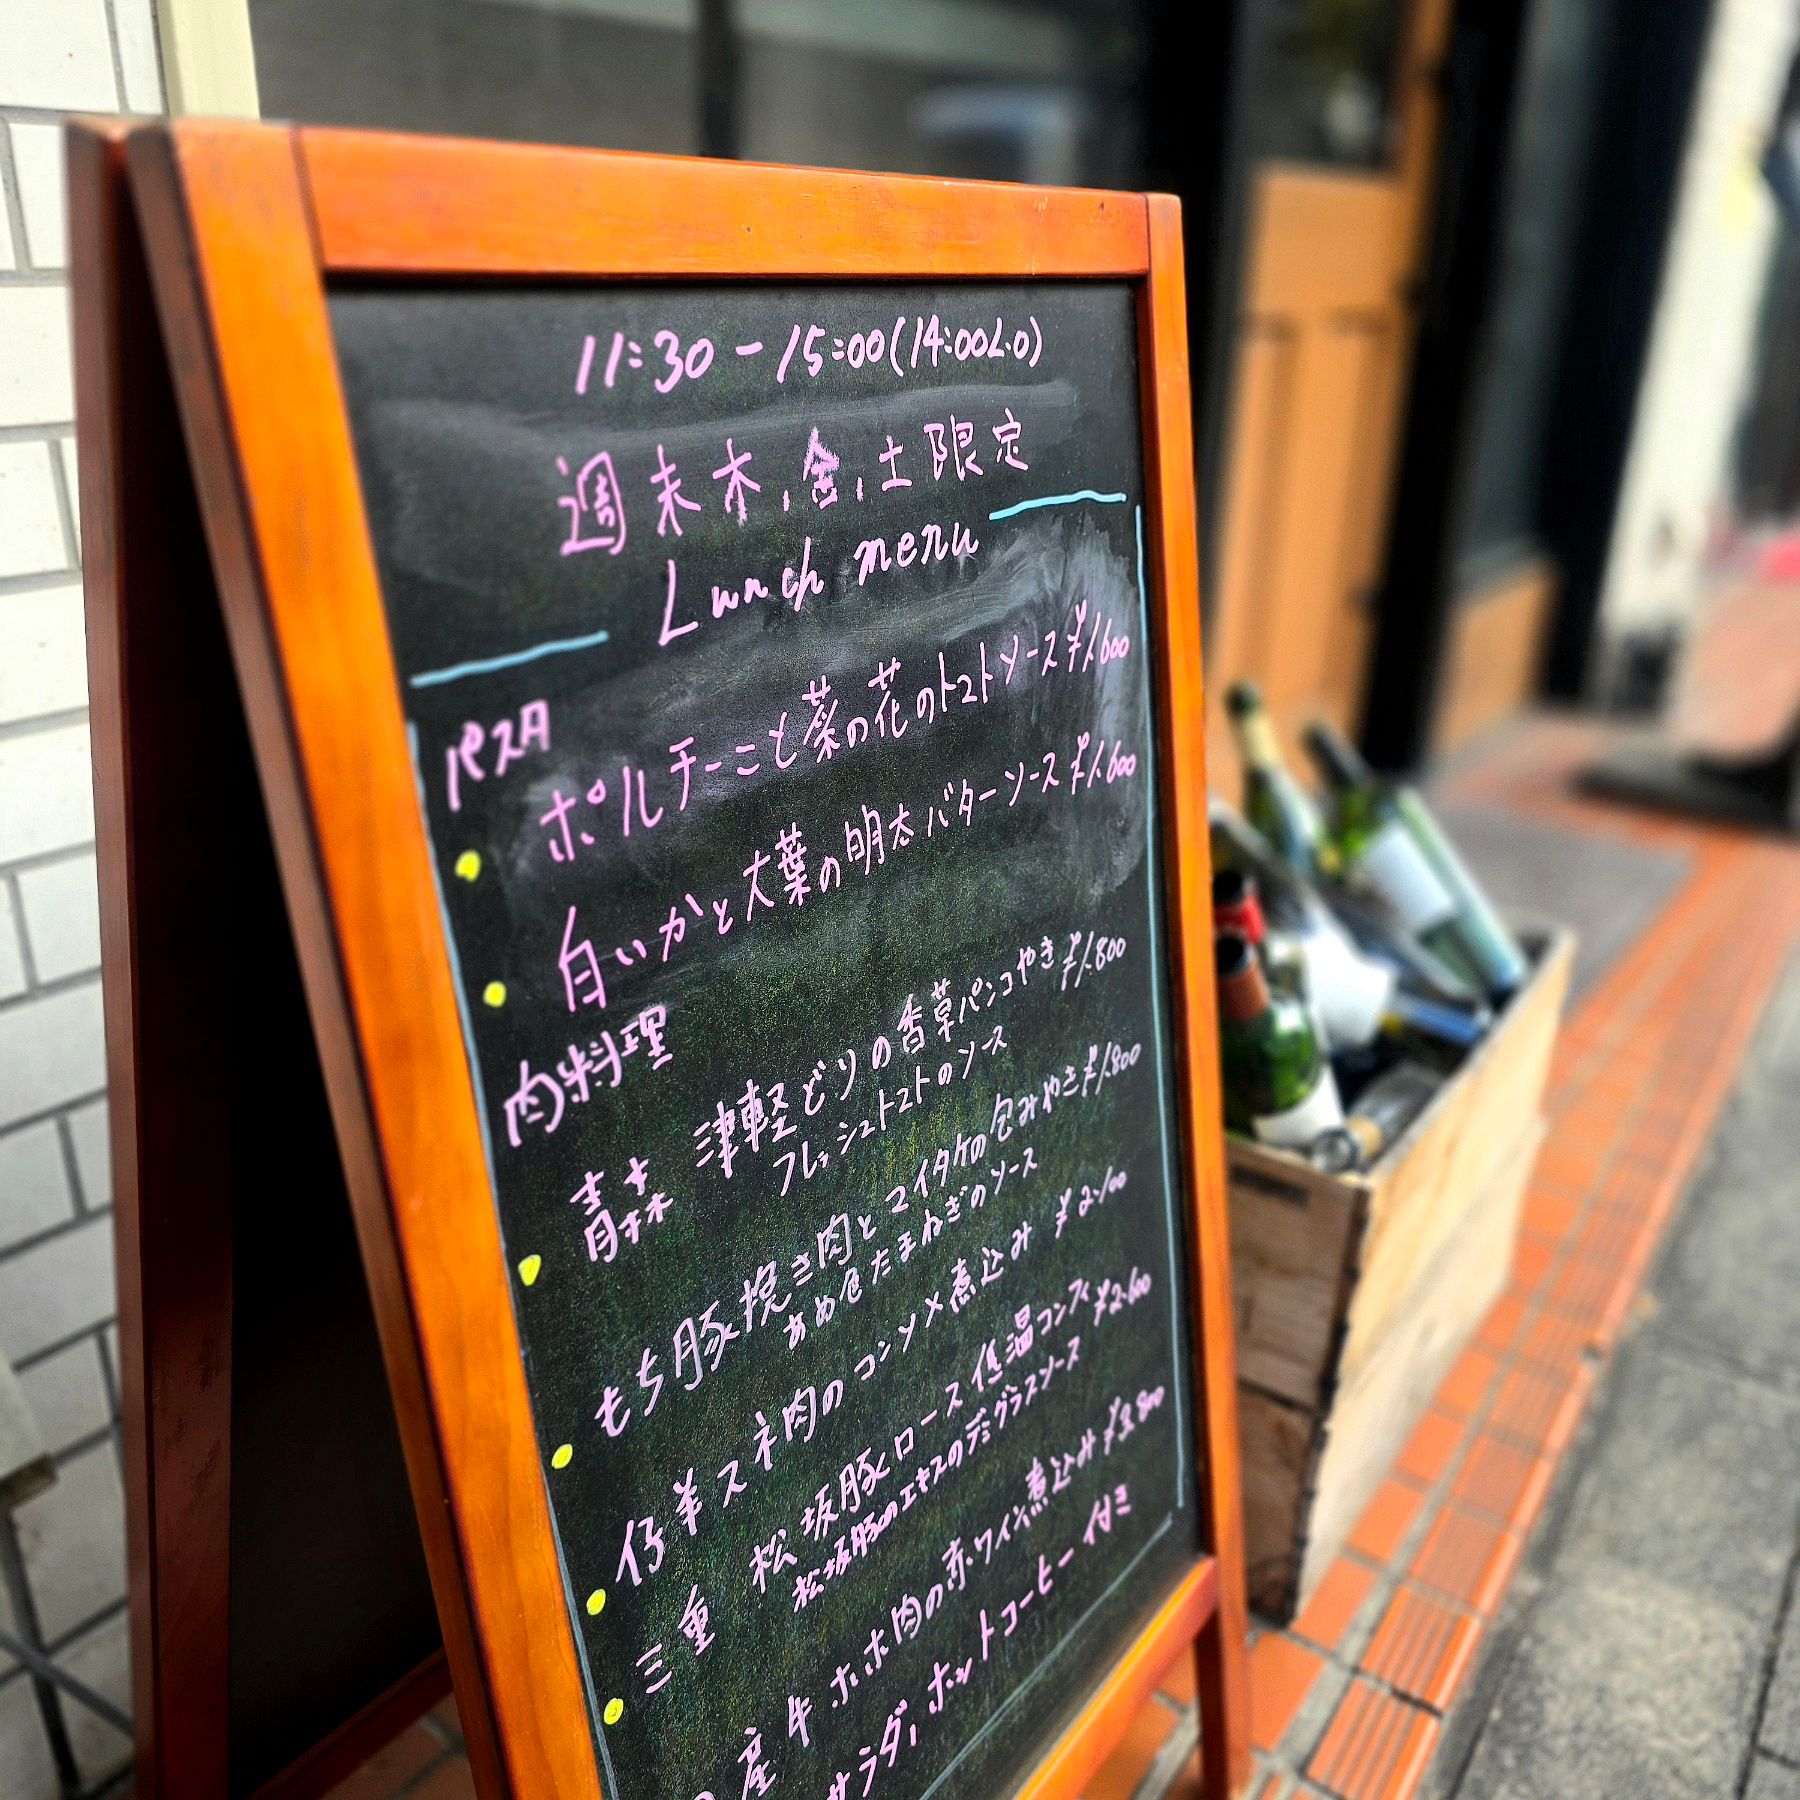 11:30-15:00(14:00L.O)
週末木,金,土限定
Lunch menu
パスタ
ポルチーニと菜の花のトマトソース ¥1.600
白いかと大葉の明太バターソース ¥1.600
肉料理
青森 津軽どりの香草パンコやき ¥1.800
フレッシュトマトのソース
もち豚挽き肉とマイタケの包みやき ¥1.800
あめ色たまねぎのソース
仔羊スネ肉のコンソメ煮込み ¥2.100
三重 松坂豚ロース低温コンフィ ¥2.600
松坂豚のエキスのデミグラスソース
産牛ホホ肉の赤ワイン煮込み ¥3.800
サラダ,ホットコーヒー付き